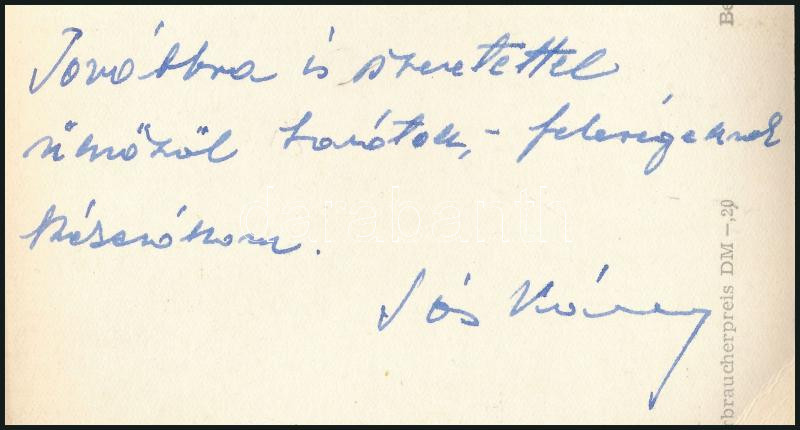 Továbbra is szeretettel
üdvözöl barátod, - feleségednek
kézcsókom.
Sós Károly
rbraucherpreis DM -,20
Be
darabanth